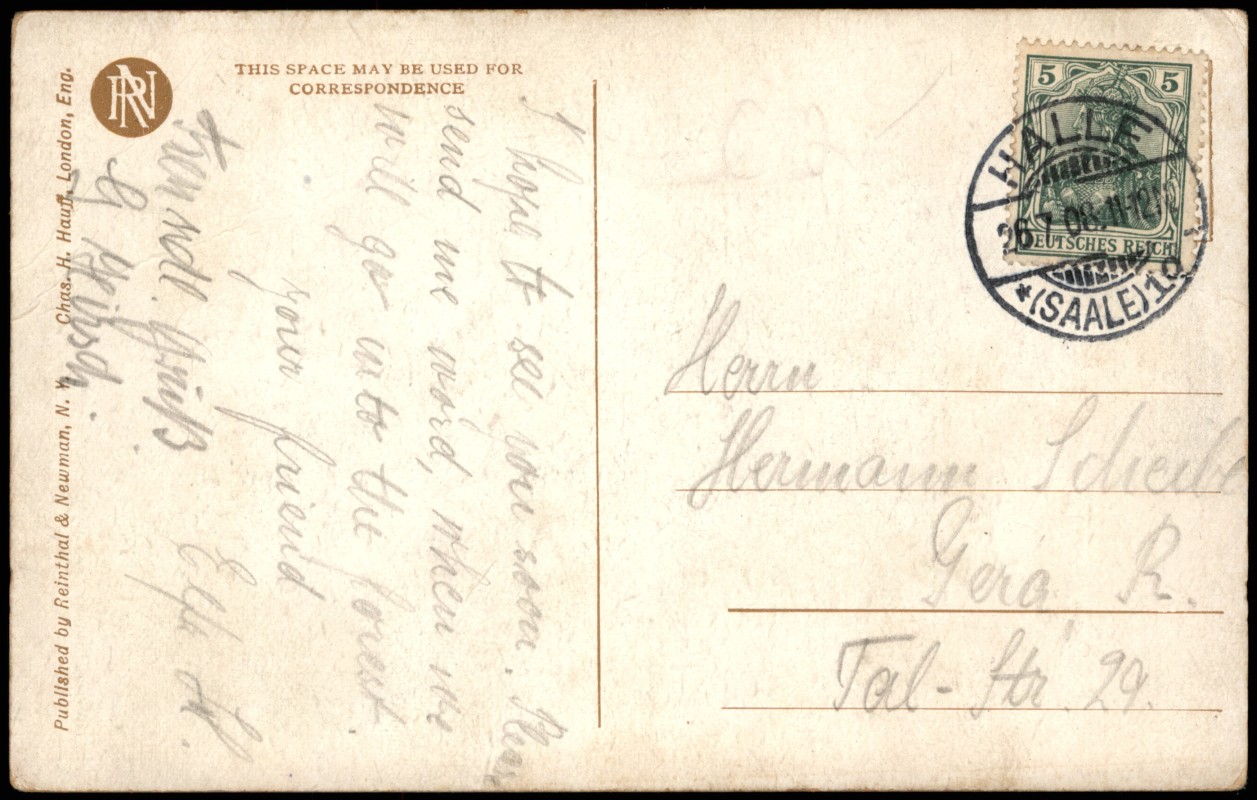 THIS SPACE MAY BE USED FOR
CORRESPONDENCE
RN
Published by Reinthal & Newman, N. Y. Chas. H. Hauff, London, Eng.
I hope to see you soon.
send me word, when we
will go into the forest
your friend
Freundl. Gruß
5 5
DEUTSCHES REICH
HALLE
26.7.08.11-12
*(SAALE)1
Herrn
Hermann
Gera R.
Tal-Str. 29.